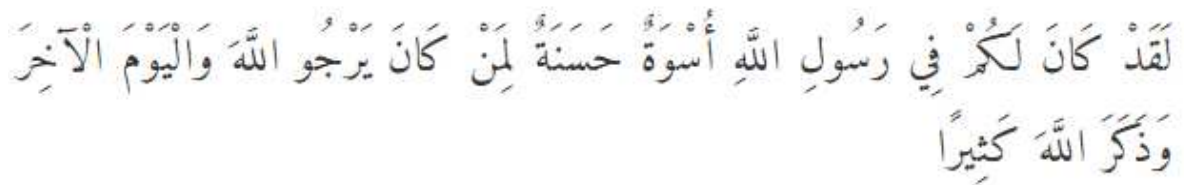 لَقَدْ كَانَ لَكُمْ فِي رَسُولِ اللَّهِ أُسْوَةٌ حَسَنَةٌ لِمَنْ كَانَ يَرْجُو اللَّهَ وَالْيَوْمَ الْآخِرَ
وَذَكَرَ اللَّهَ كَثِيرًا